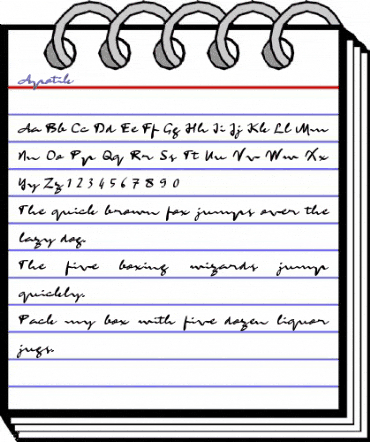 Ayratile
Aa Bb Cc Dd Ee Ff Gg Hh Ii Jj Kk Ll Mm
Nn Oo Pp Qq Rr Ss Tt Uu Vv Ww Xx
Yy Zz 1 2 3 4 5 6 7 8 9 0
The quick brown fox jumps over the
lazy dog.
The five boxing wizards jump
quickly.
Pack my box with five dozen liquor
jugs.